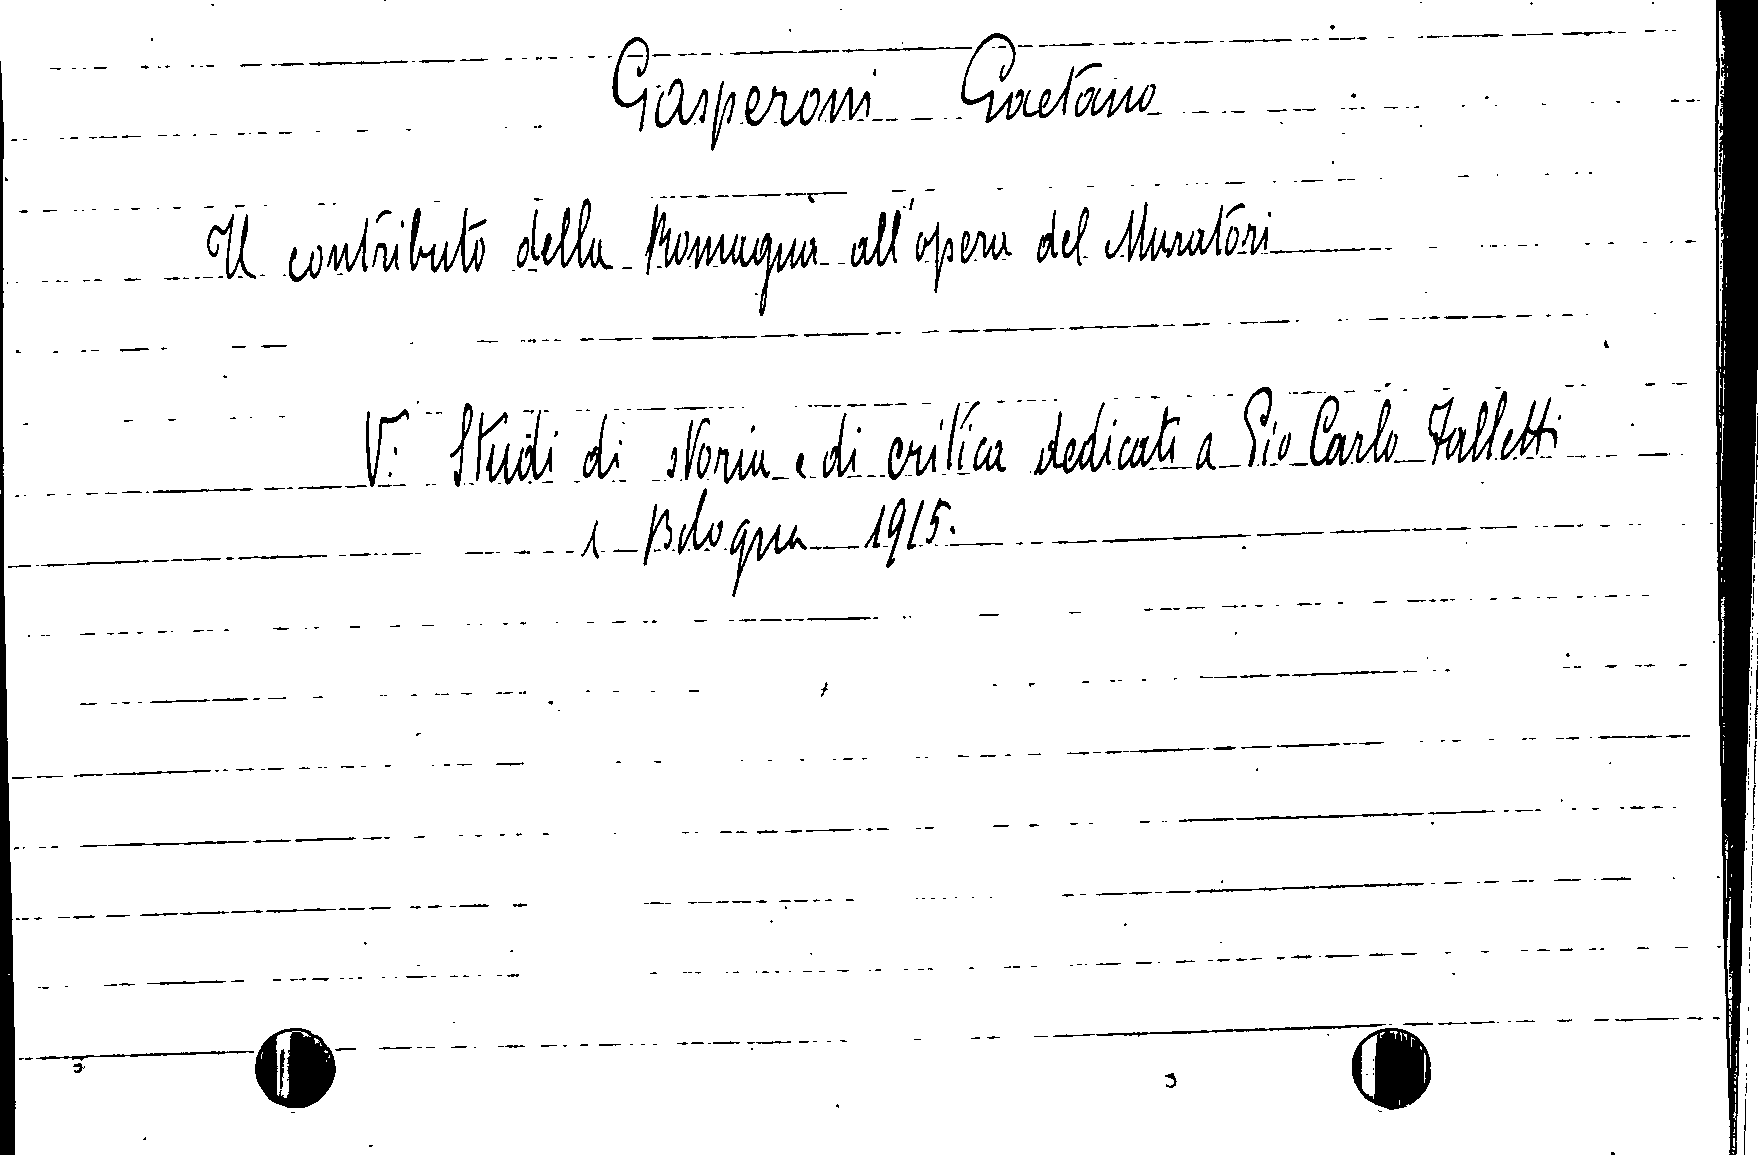 Gasperoni Gaetano
Il contributo della Romagna all'opera del Muratori
V. Studi di storia e di critica dedicati a Pio Carlo Falletti
Bologna 1915.